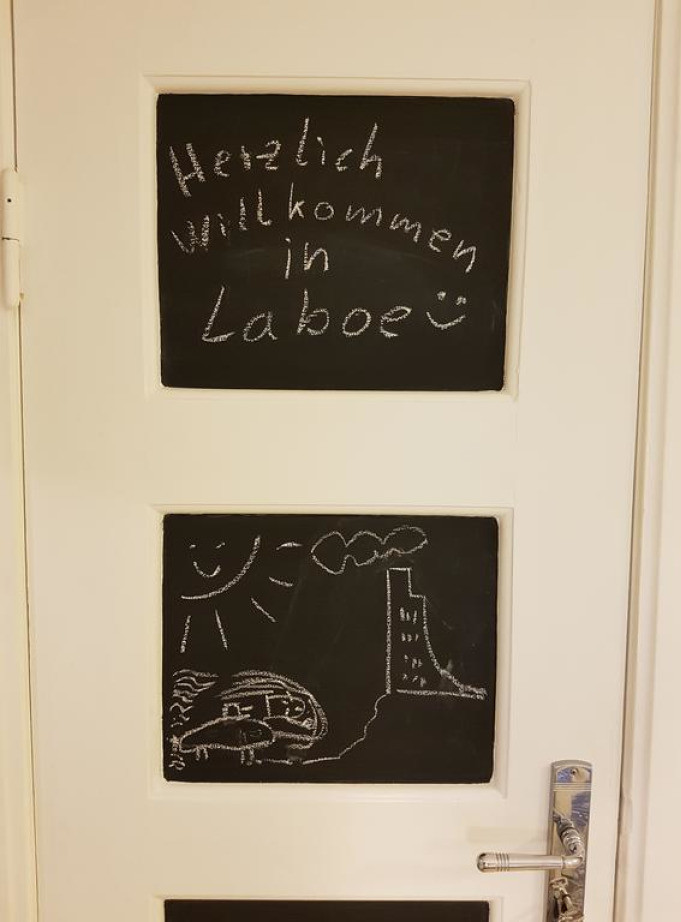 Herzlich
willkommen
in
Laboe